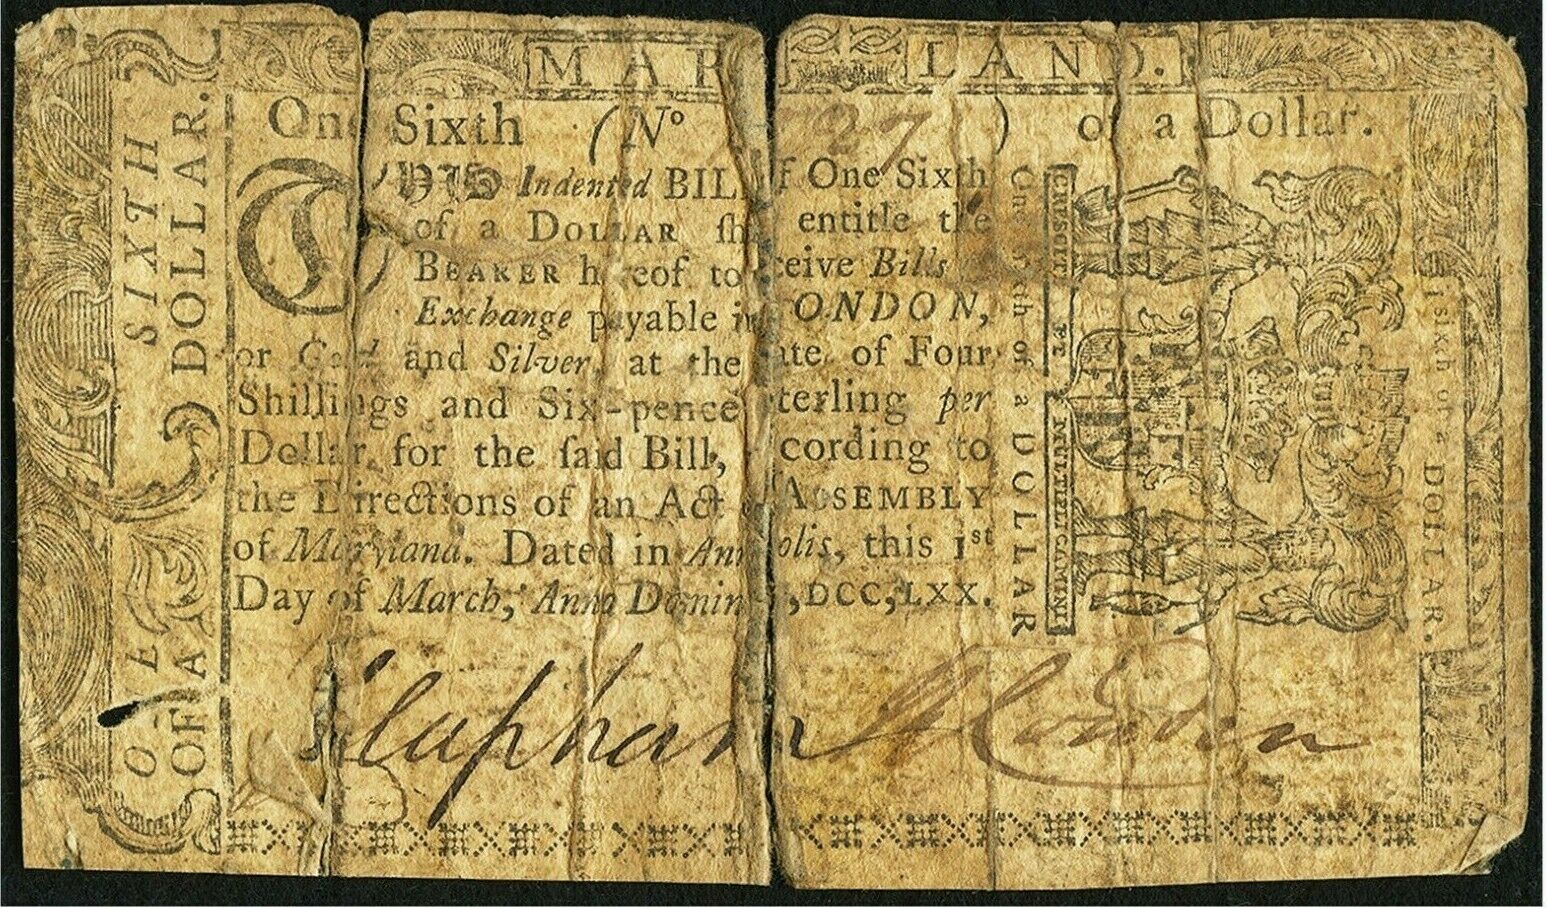 MAR LAND.
One Sixth (No 27) of a Dollar.
THIS Indented BIL f One Sixth
of a DOLLAR sh entitle the
BEARER hereof to ceive Bills
Exchange payable in ONDON,
or Gold and Silver, at the ate of Four
Shillings and Six-pence terling per
Dollar for the ſaid Bill, cording to
the Directions of an Act ASSEMBLY
of Maryland. Dated in Ann olis, this 1st
Day of March, Anno Domin ,DCC,LXX.
J Clapham
ONE SIXTH
OF A DOLLAR.
One Sixth of a DOLLAR
CRESCITE ET MULTIPLICAMINI
Sixth of a DOLLAR.